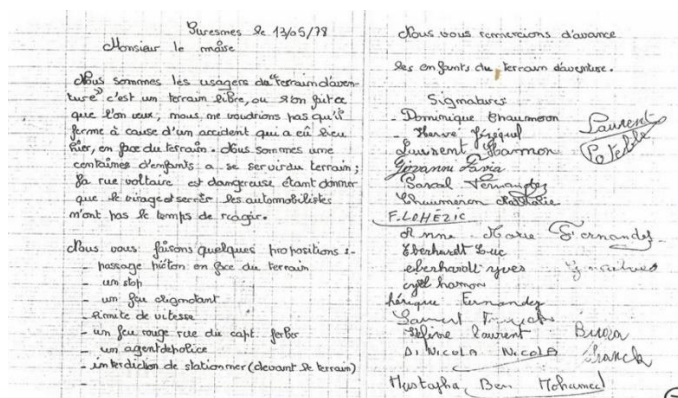 Suresnes le 13/05/78
Monsieur le maire
Nous sommes les usagers du "terrain d'aven-
ture" c'est un terrain libre, ou s'on fait ce
que l'on veux, nous ne voudrions pas qu'il
ferme à cause d'un accident qui a eû lieu
hier, en face du terrain. Nous sommes une
centaines d'enfants a se servir du terrain;
la rue voltaire est dangereuse étant donner
que le virage est serrée les automobilistes
n'ont pas le temps de réagir.
Nous vous faisons quelques propositions :-
- passage piéton en face du terrain
- un stop
- un feu clignotant
- limite de vitesse
- un feu rouge rue du capt. ferber
- un agent de police
- interdiction de stationner (devant le terrain)
Nous vous remercions d'avance
les enfants du terrain d'aventure.
Signatures
- Dominique Chaumeron
- Hervé
Laurent Hamon
Laurent
Potelle
Giovanni Pavia
Pascal Fernandez
Chaumeron Nathalie
F. LOHÉZIC
Anne - Marie Fernandez
Eberhardt Luc
eberhardt yves
cyril hamon
Fernandez
Laurent François
laurent
DI NICOLA NICOLA
Franck
Mustapha, Ben Mohamed